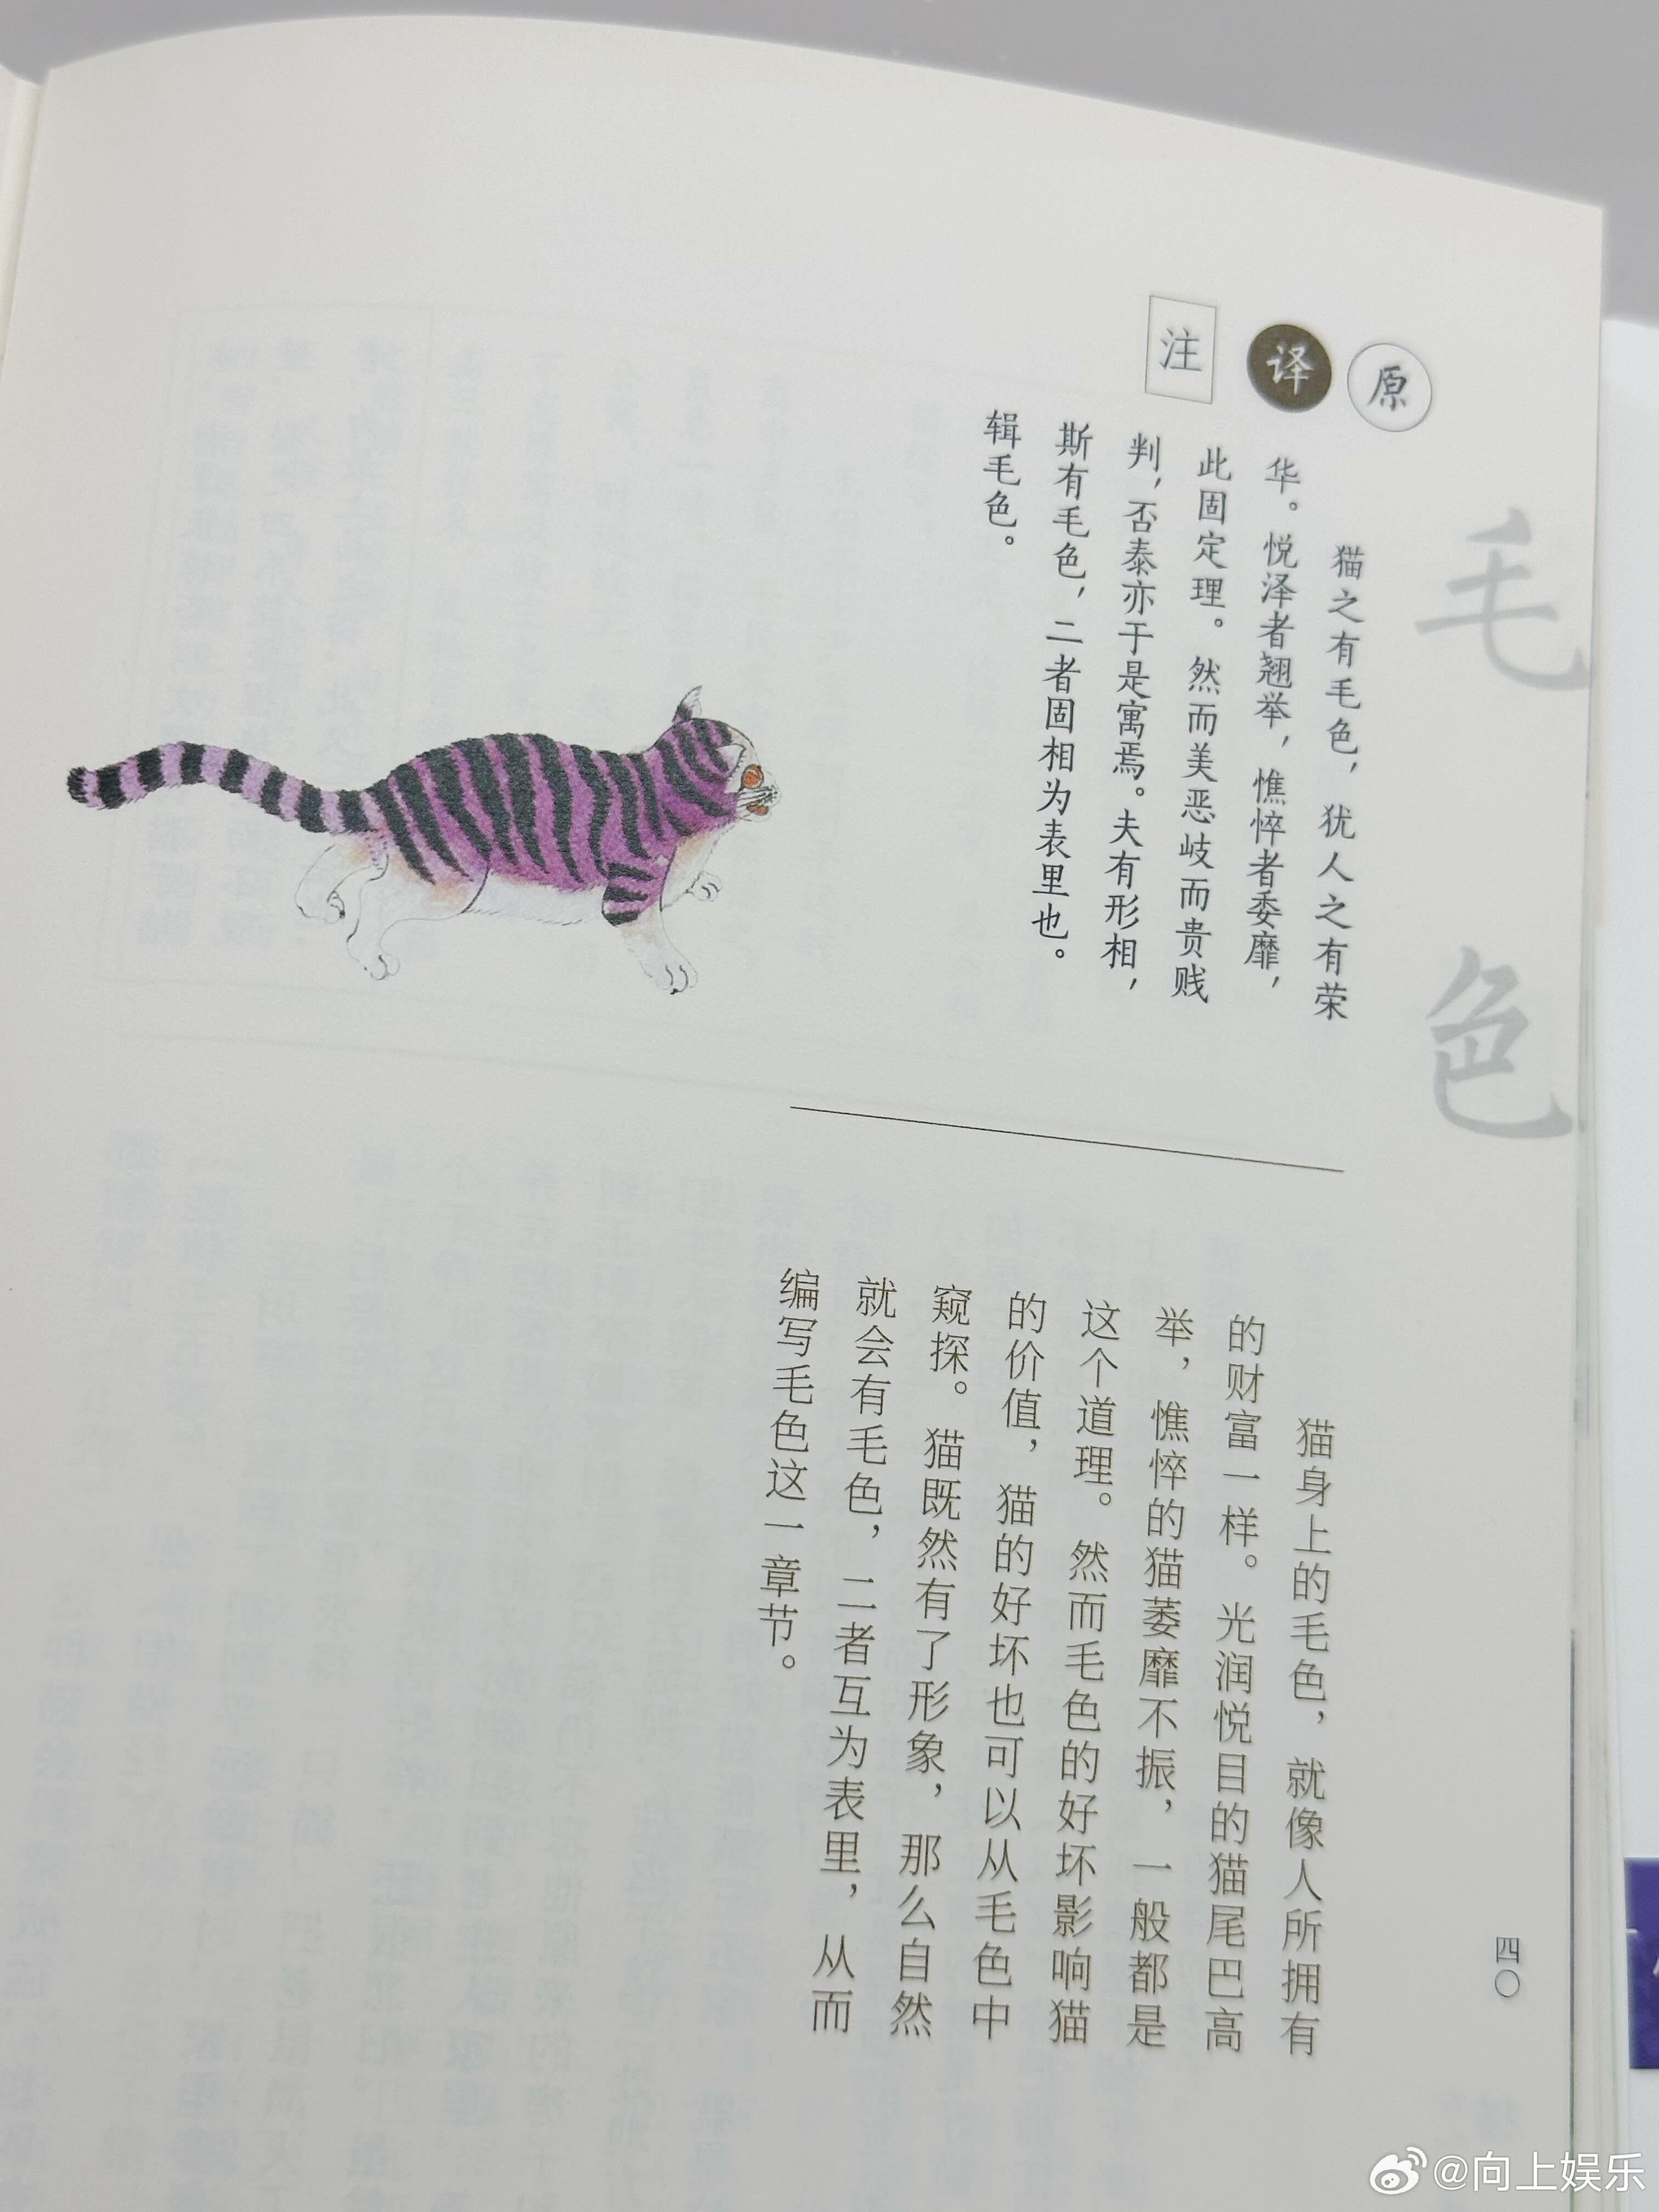 毛色
原
译
注
猫之有毛色，犹人之有荣
华。悦泽者翘举，憔悴者委靡，
此固定理。然而美恶岐而贵贱
判，否泰亦于是寓焉。夫有形相，
斯有毛色，二者固相为表里也。
辑毛色。
猫身上的毛色，就像人所拥有
的财富一样。光润悦目的猫尾巴高
举，憔悴的猫萎靡不振，一般都是
这个道理。然而毛色的好坏影响猫
的价值，猫的好坏也可以从毛色中
窥探。猫既然有了形象，那么自然
就会有毛色，二者互为表里，从而
编写毛色这一章节。
四〇
@向上娱乐